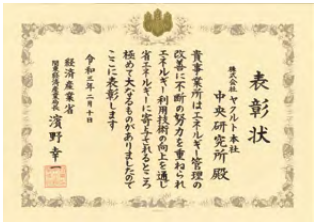 表彰状
株式会社ヤクルト本社
中央研究所殿
貴事業所はエネルギー管理の
改善に不断の努力を重ねられ
エネルギー利用技術の向上を通じ
省エネルギーに寄与されるところ
極めて大なるものがありましたので
ここに表彰します
令和三年二月十日
経済産業省
関東経済産業局長
濱野幸